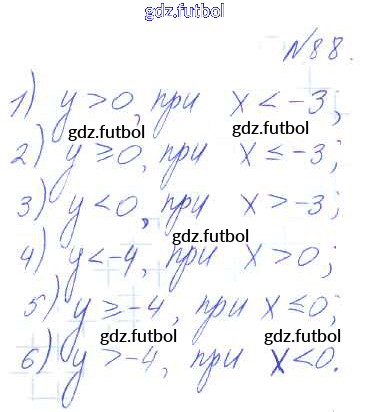 gdz.futbol
N88.
1) y > 0, при x < -3;
gdz.futbol
2) y ≥ 0, при x ≤ -3;
gdz.futbol gdz.futbol
3) y < 0, при x > -3;
gdz.futbol
4) y < -4, при x > 0;
5) y ≥ -4, при x ≤ 0;
gdz.futbol gdz.futbol
6) y > -4, при x < 0.